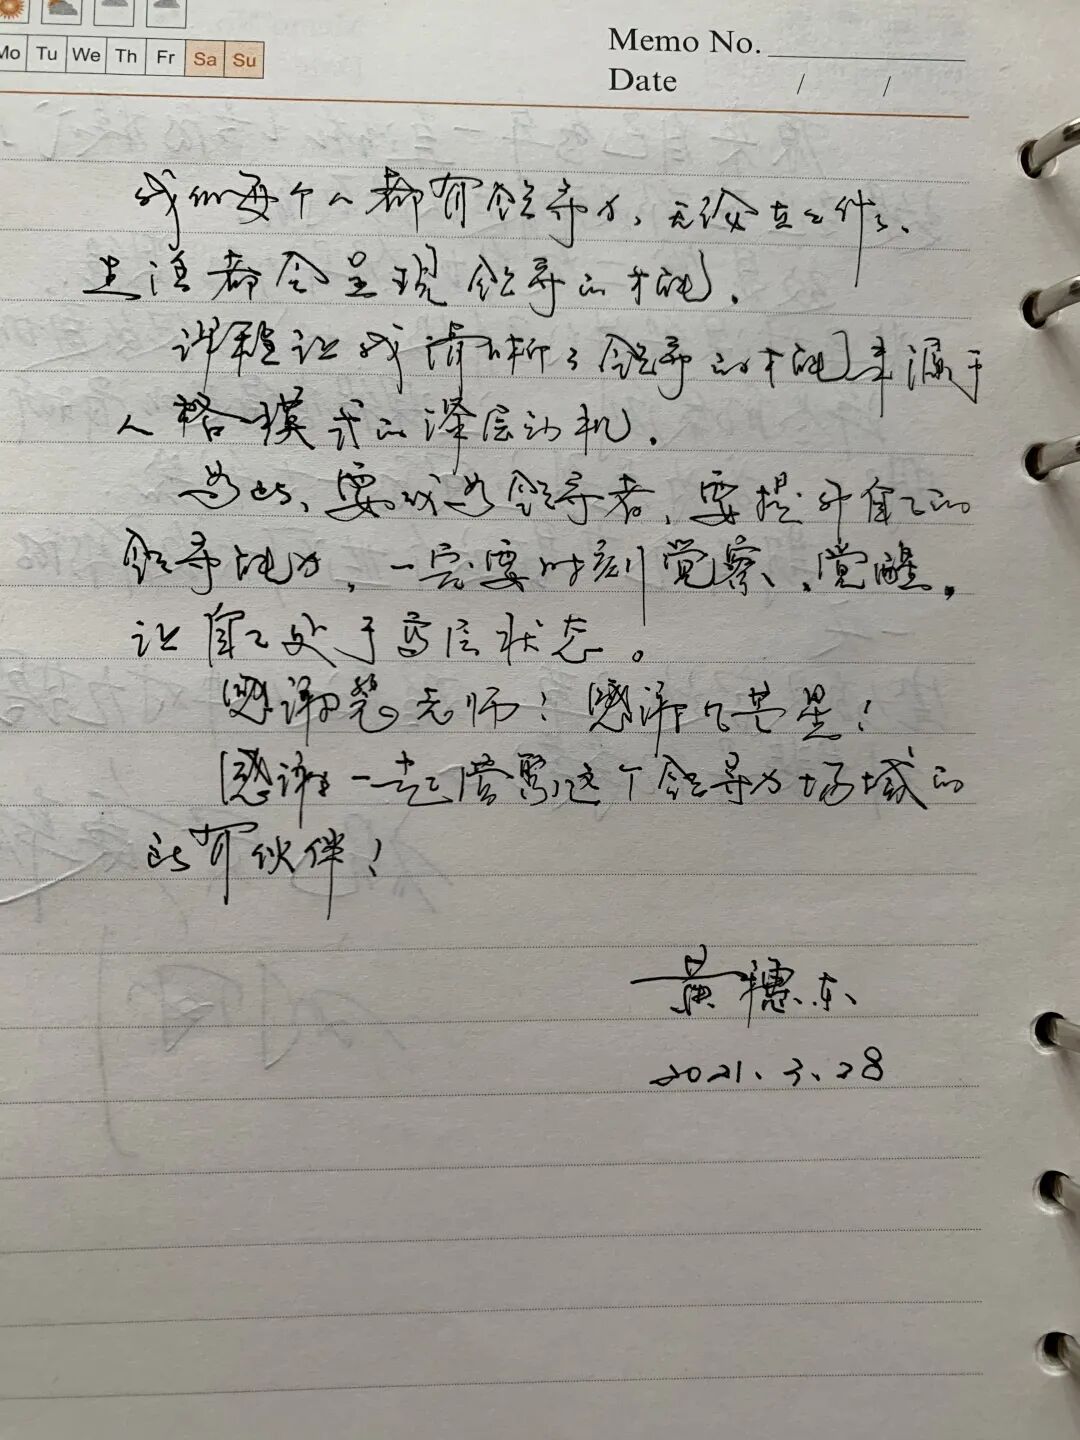 Mo Tu We Th Fr Sa Su
Memo No.
Date / /
我们每个人都有领导力,无论在工作、
生活都会呈现领导的才能.
课程让我清晰了领导的才能来源于
人格模式的深层动机.
为此,要成为领导者,要提升自己的
领导能力,一定要时刻觉察、觉醒,
让自己处于高层状态。
感谢 老师!感谢 星!
感谢一起营 这个领导力场域的
所有伙伴!
黄穗东
2021.3.28